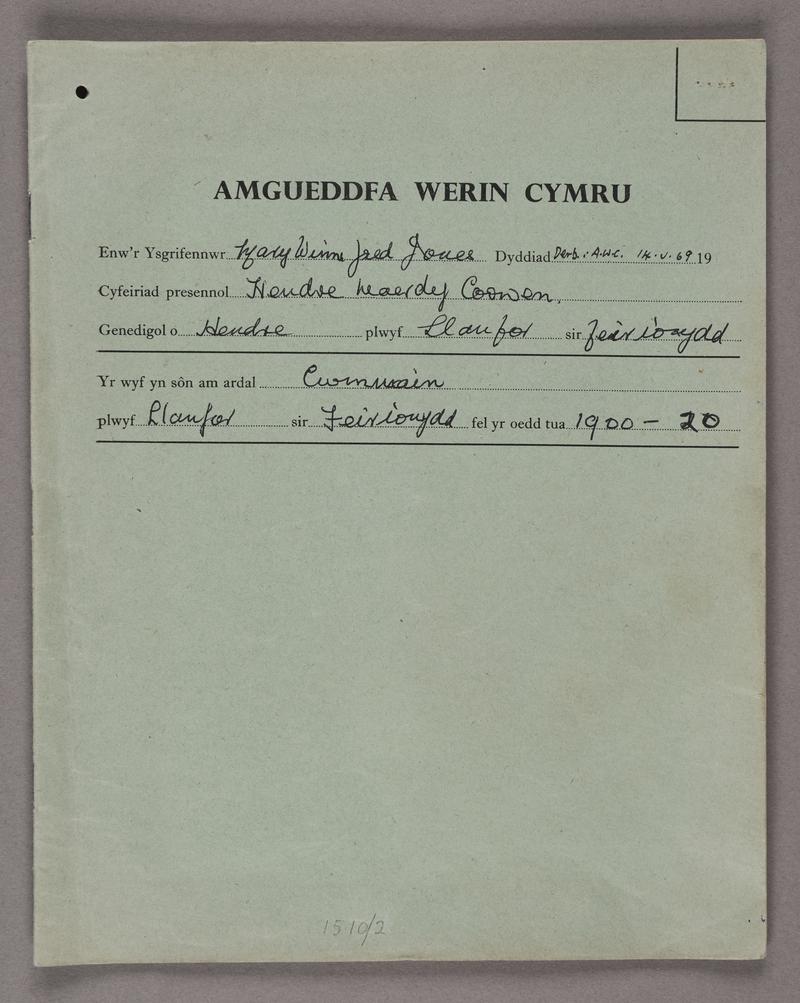 AMGUEDDFA WERIN CYMRU
Enw'r Ysgrifennwr Mary Winnifred Jones Dyddiad Derb: A.W.C. 14.V.69 19
Cyfeiriad presennol Hendre Maerdy Corwen.
Genedigol o Hendre plwyf Llanfor sir Feirionydd
Yr wyf yn sôn am ardal
plwyf Llanfor sir Feirionydd fel yr oedd tua 1900 - 20
1510/2